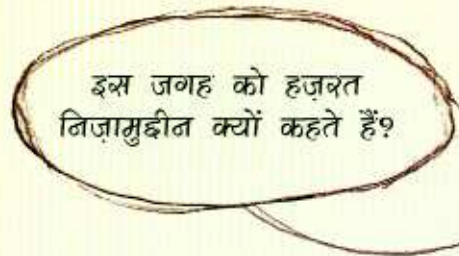 इस जगह को हज़रत
निज़ामुद्दीन क्यों कहते हैं?